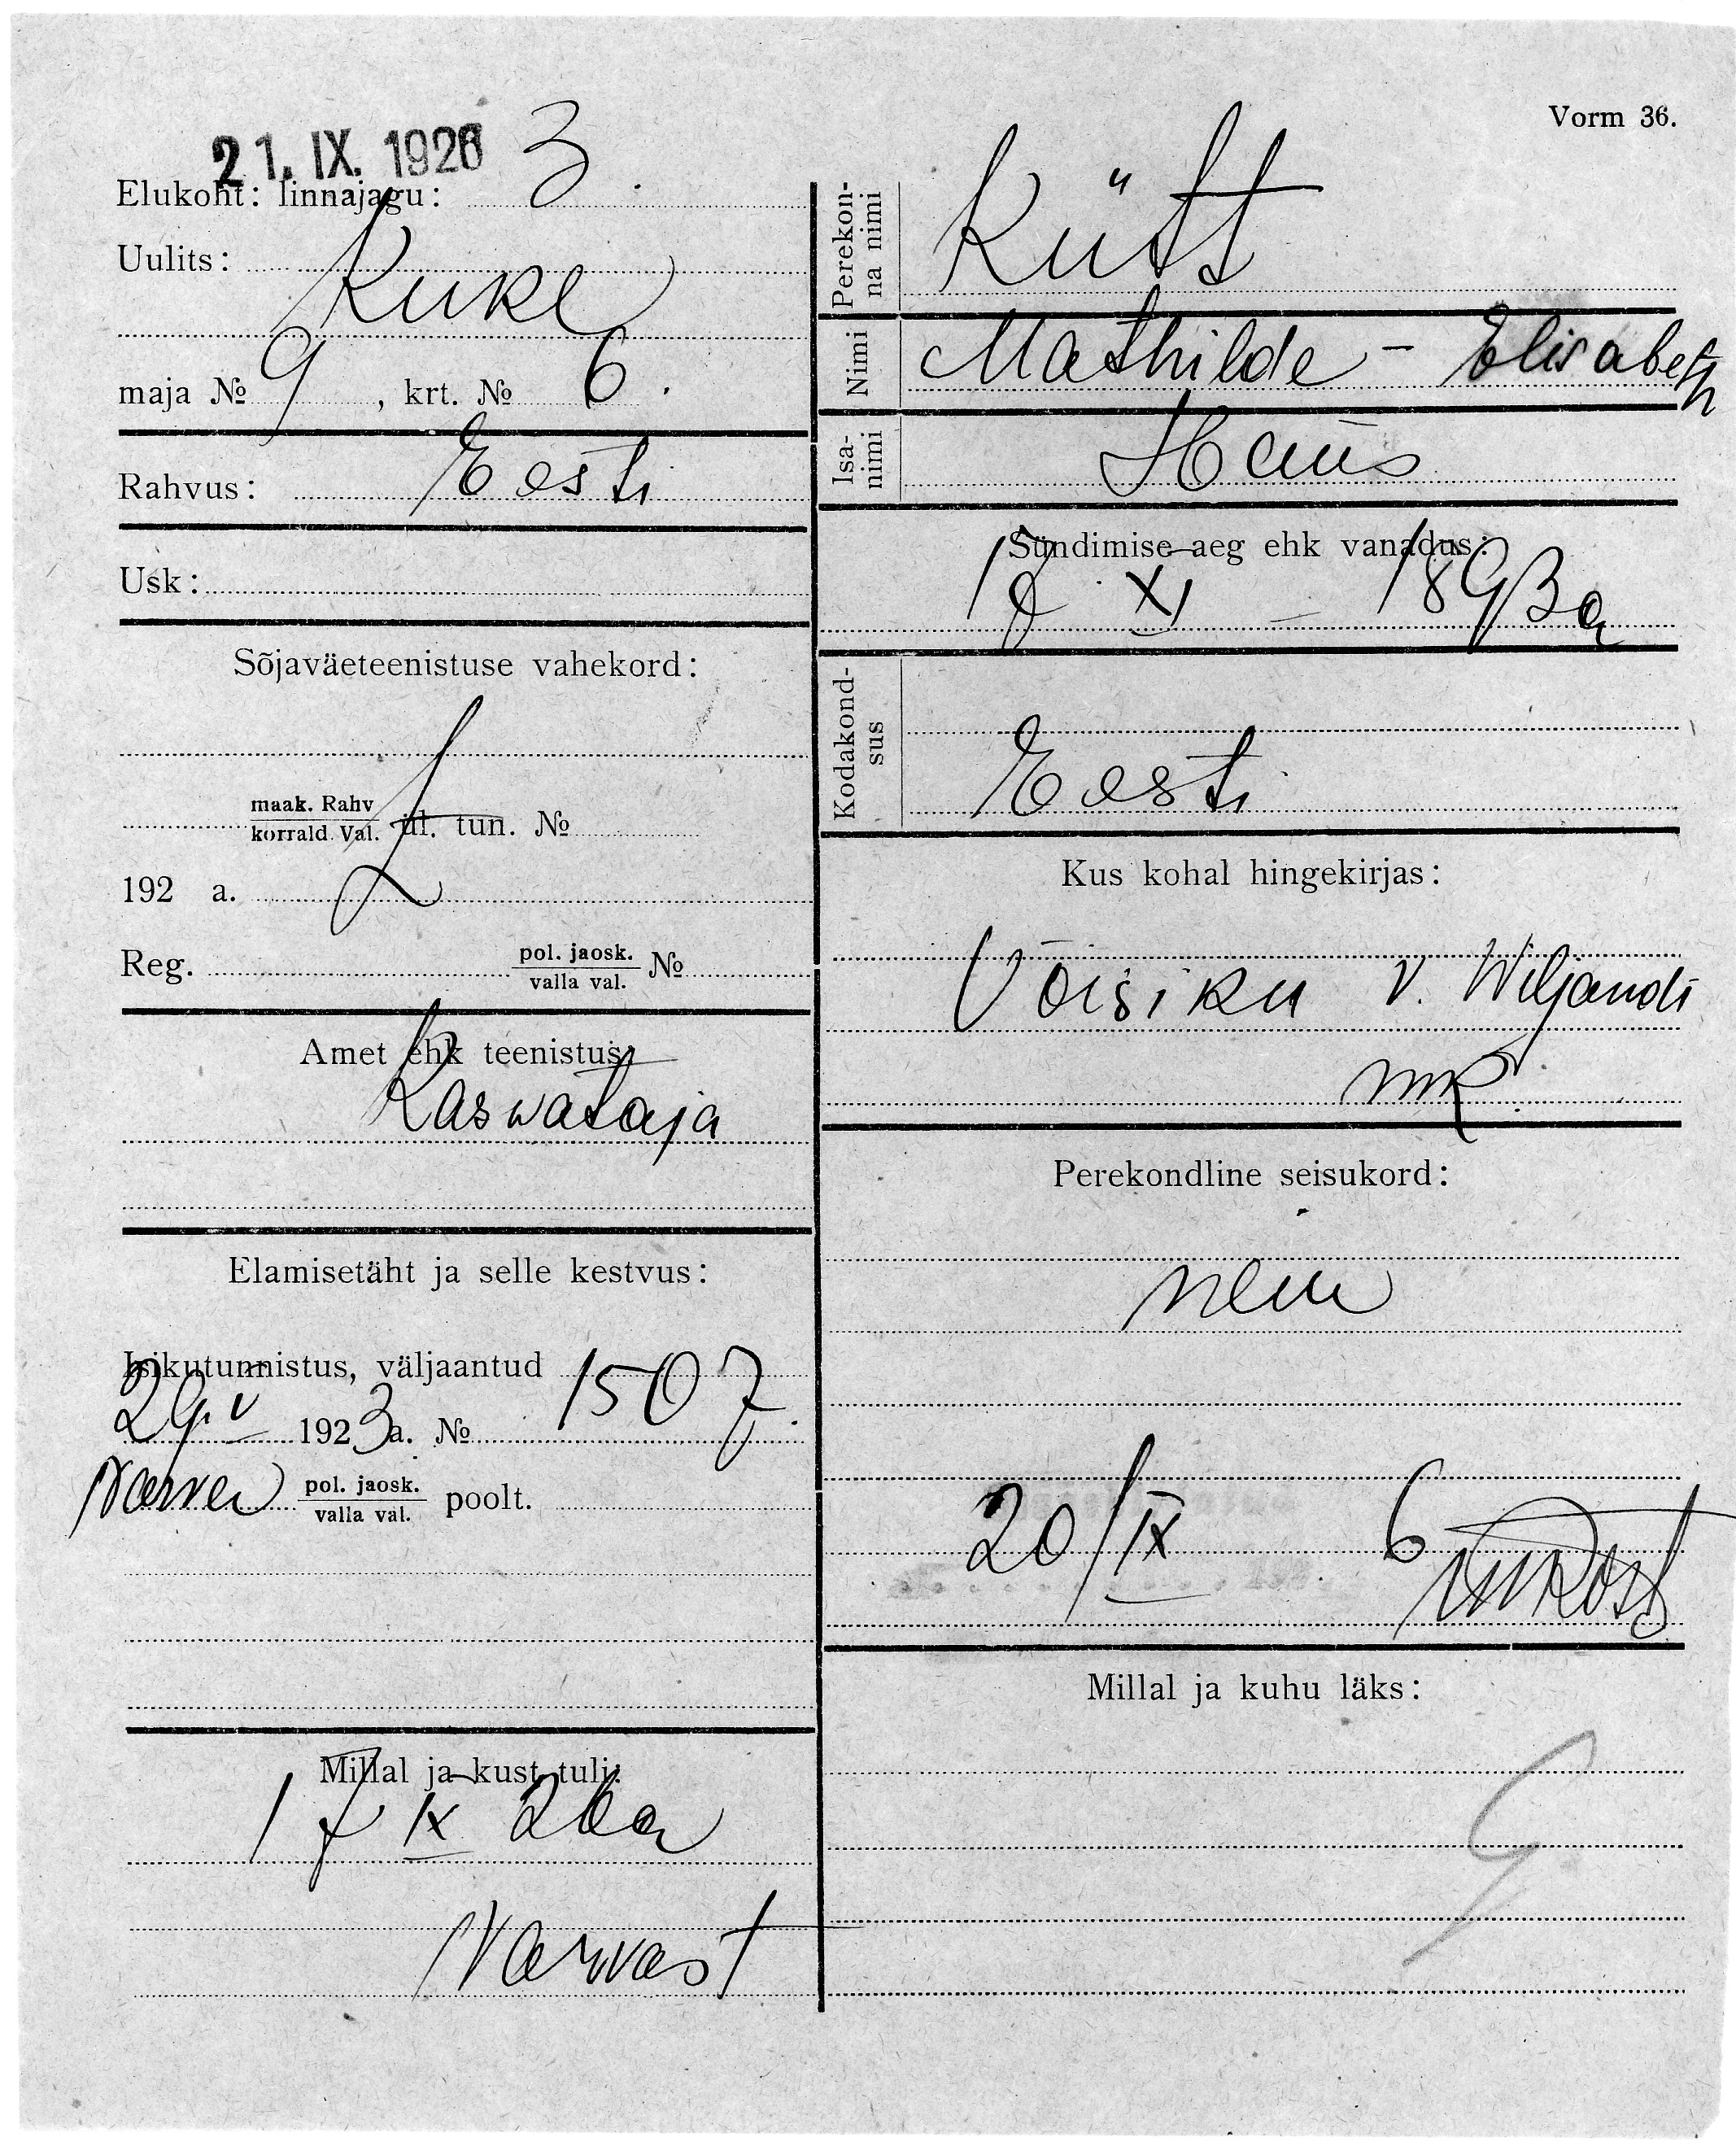 Vorm 36.
21. IX. 1926
Elukoht: linnajagu: 3
Uulits:
Kuke
maja № 9, krt. № 6.
Rahvus: Eesti
Usk:
Sõjaväeteenistuse vahekord:
maak. Rahv
korrald. Val. ül. tun. №
192 a.
Reg. pol. jaosk. №
valla val.
Amet ehk teenistus:
Kaswataja
Elamisetäht ja selle kestvus:
Isikutunnistus, väljaantud 1507.
29. V 1923 a. №
Narva pol. jaosk. poolt.
valla val.
Millal ja kust tuli:
17 IX 26 a
Narvast
Perekon-
na nimi
Kütt
Nimi Mathilde - Elisabeth
Isa-
nimi
Hans
Sündimise aeg ehk vanadus:
XI - 1893 a
Kodakond-
sus
Eesti
Kus kohal hingekirjas:
Võisiku v. Wiljandi
mk.
Perekondline seisukord:
neiu
20/IX 6
Millal ja kuhu läks: